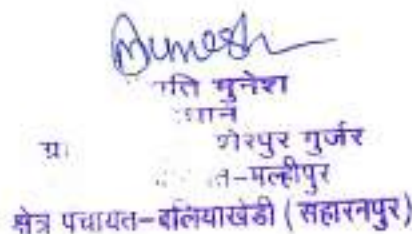 Munesh
मुनेश
ग्रा शेरपुर गुर्जर
-मल्हीपुर
क्षेत्र पंचायत-बलियाखेडी (सहारनपुर)